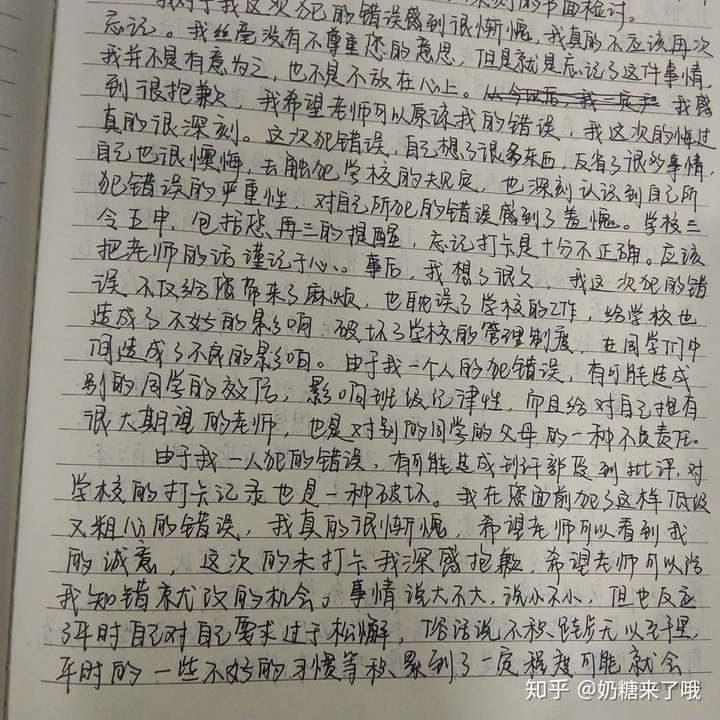 我对于我这次犯的错误感到很惭愧,我真的不应该再次
忘记。我丝毫没有不尊重您的意思,但是就是忘记了这件事情,
我并不是有意为之,也不是不放在心上。从今以后,我一定 我感
到很抱歉,我希望老师可以原谅我的错误,我这次的悔过
真的很深刻。这次犯错误,自己想了很多东西,反省了很多事情,
自己也很懊悔,去触犯学校的规定,也深刻认识到自己所
犯错误的严重性,对自己所犯的错误感到了羞愧。学校三
令五申,包括您再三的提醒,忘记打卡是十分不正确。应该
把老师的话谨记于心。事后,我想了很久,我这次犯的错
误不仅给您带来了麻烦,也耽误了学校的工作,给学校也
造成了不好的影响,破坏了学校的管理制度,在同学们中
间造成了不良的影响。由于我一个人的犯错误,有可能造成
别的同学的效仿,影响班级纪律性,而且给对自己抱有
很大期望的老师,也是对别的同学的父母的一种不负责任。
由于我一人犯的错误,有可能造成 受到批评,对
学校的打卡记录也是一种破坏。我在您面前犯了这样低级
又粗心的错误,我真的很惭愧,希望老师可以看到我
的诚意,这次的未打卡我深感抱歉,希望老师可以给
我知错就改的机会。事情说大不大,说小不小,但也反应
了平时自己对自己要求过于松懈,俗话说不积跬步无以至千里,
平时的一些不好的习惯等积累到了一定程度可能就会
知乎 @奶糖来了哦